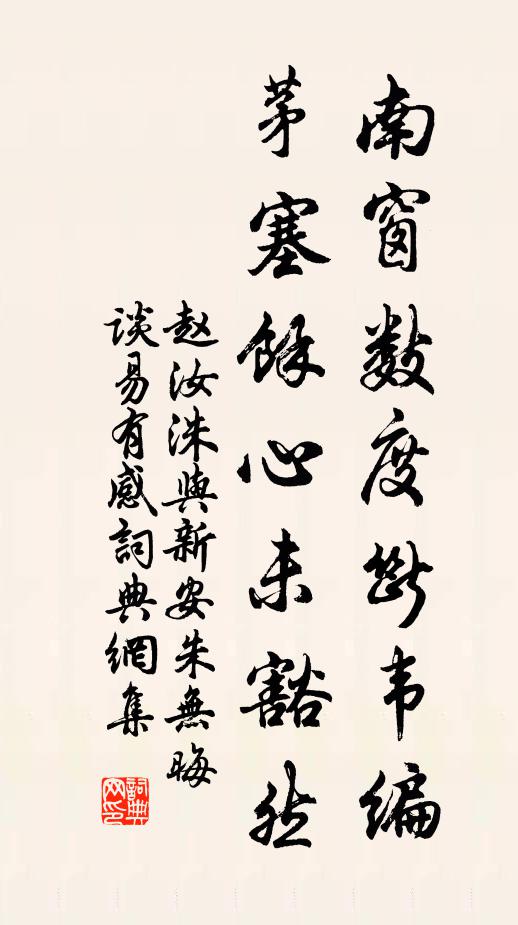 南窗数度断韦编
茅塞馀心未豁然
赵汝洙與新安朱無晦
谈易有感詞典網集
詞典
网印